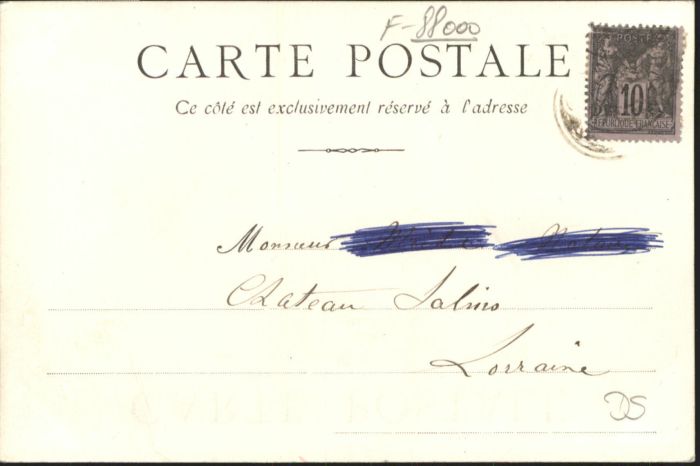 F-88000
CARTE POSTALE
Ce côté est exclusivement réservé à l'adresse
POSTE
10
REPUBLIQUE FRANCAISE
Monsieur
Chateau Salins
Lorraine
DS